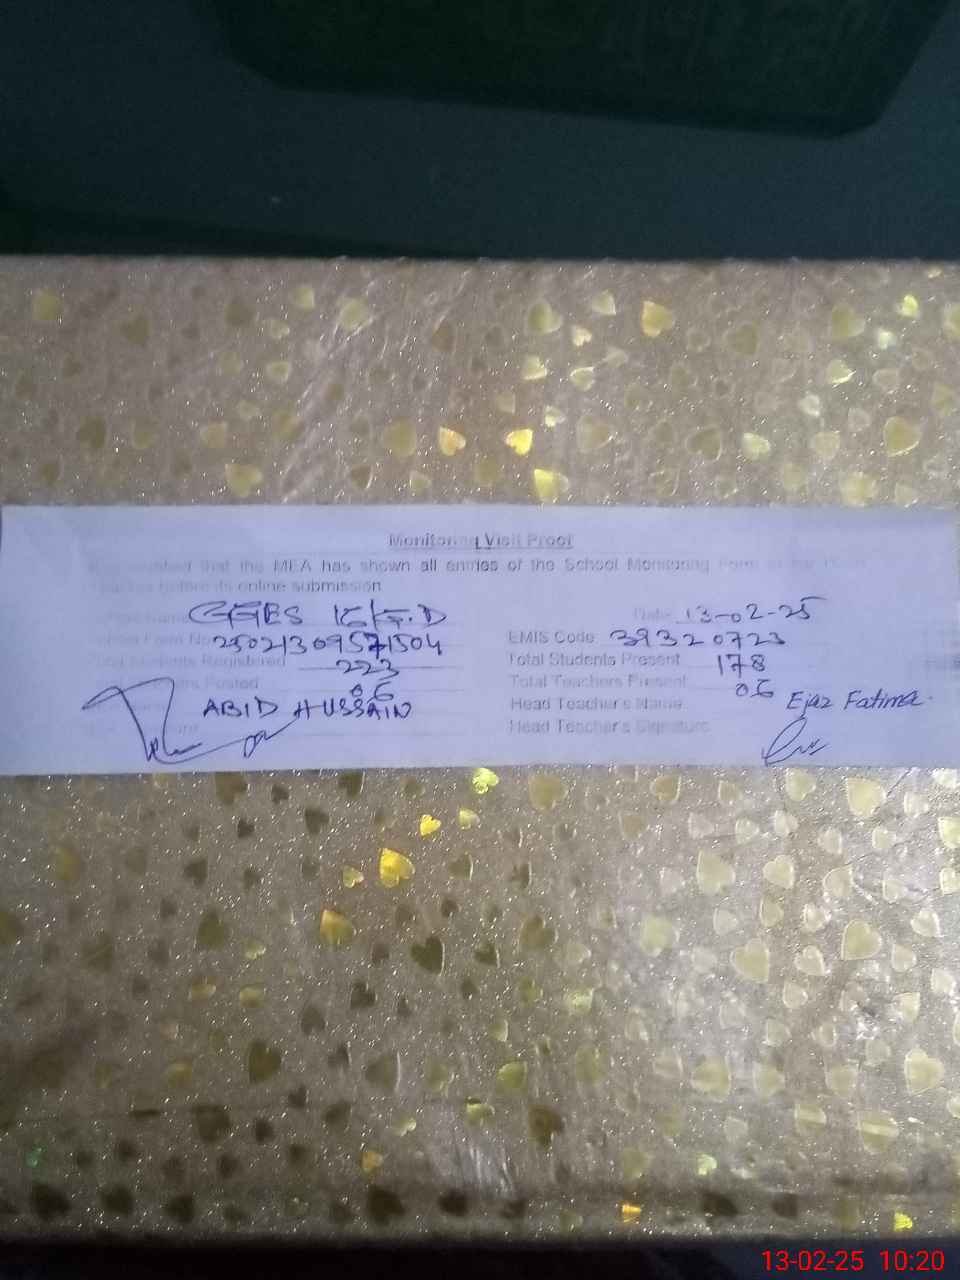 Monitoring Visit Proof
that the MEA has shown all entries of the School Monitoring Form to the
before its online submission
Name GGES 15/G.D Date: 13-02-25
Form No 25021309571504 EMIS Code: 39320723
Students Registered 223 Total Students Present 178
Posted 06 Total Teachers Present 06
ABID HUSSAIN Head Teacher's Name Ejaz Fatima.
Head Teacher's Signature
13-02-25 10:20